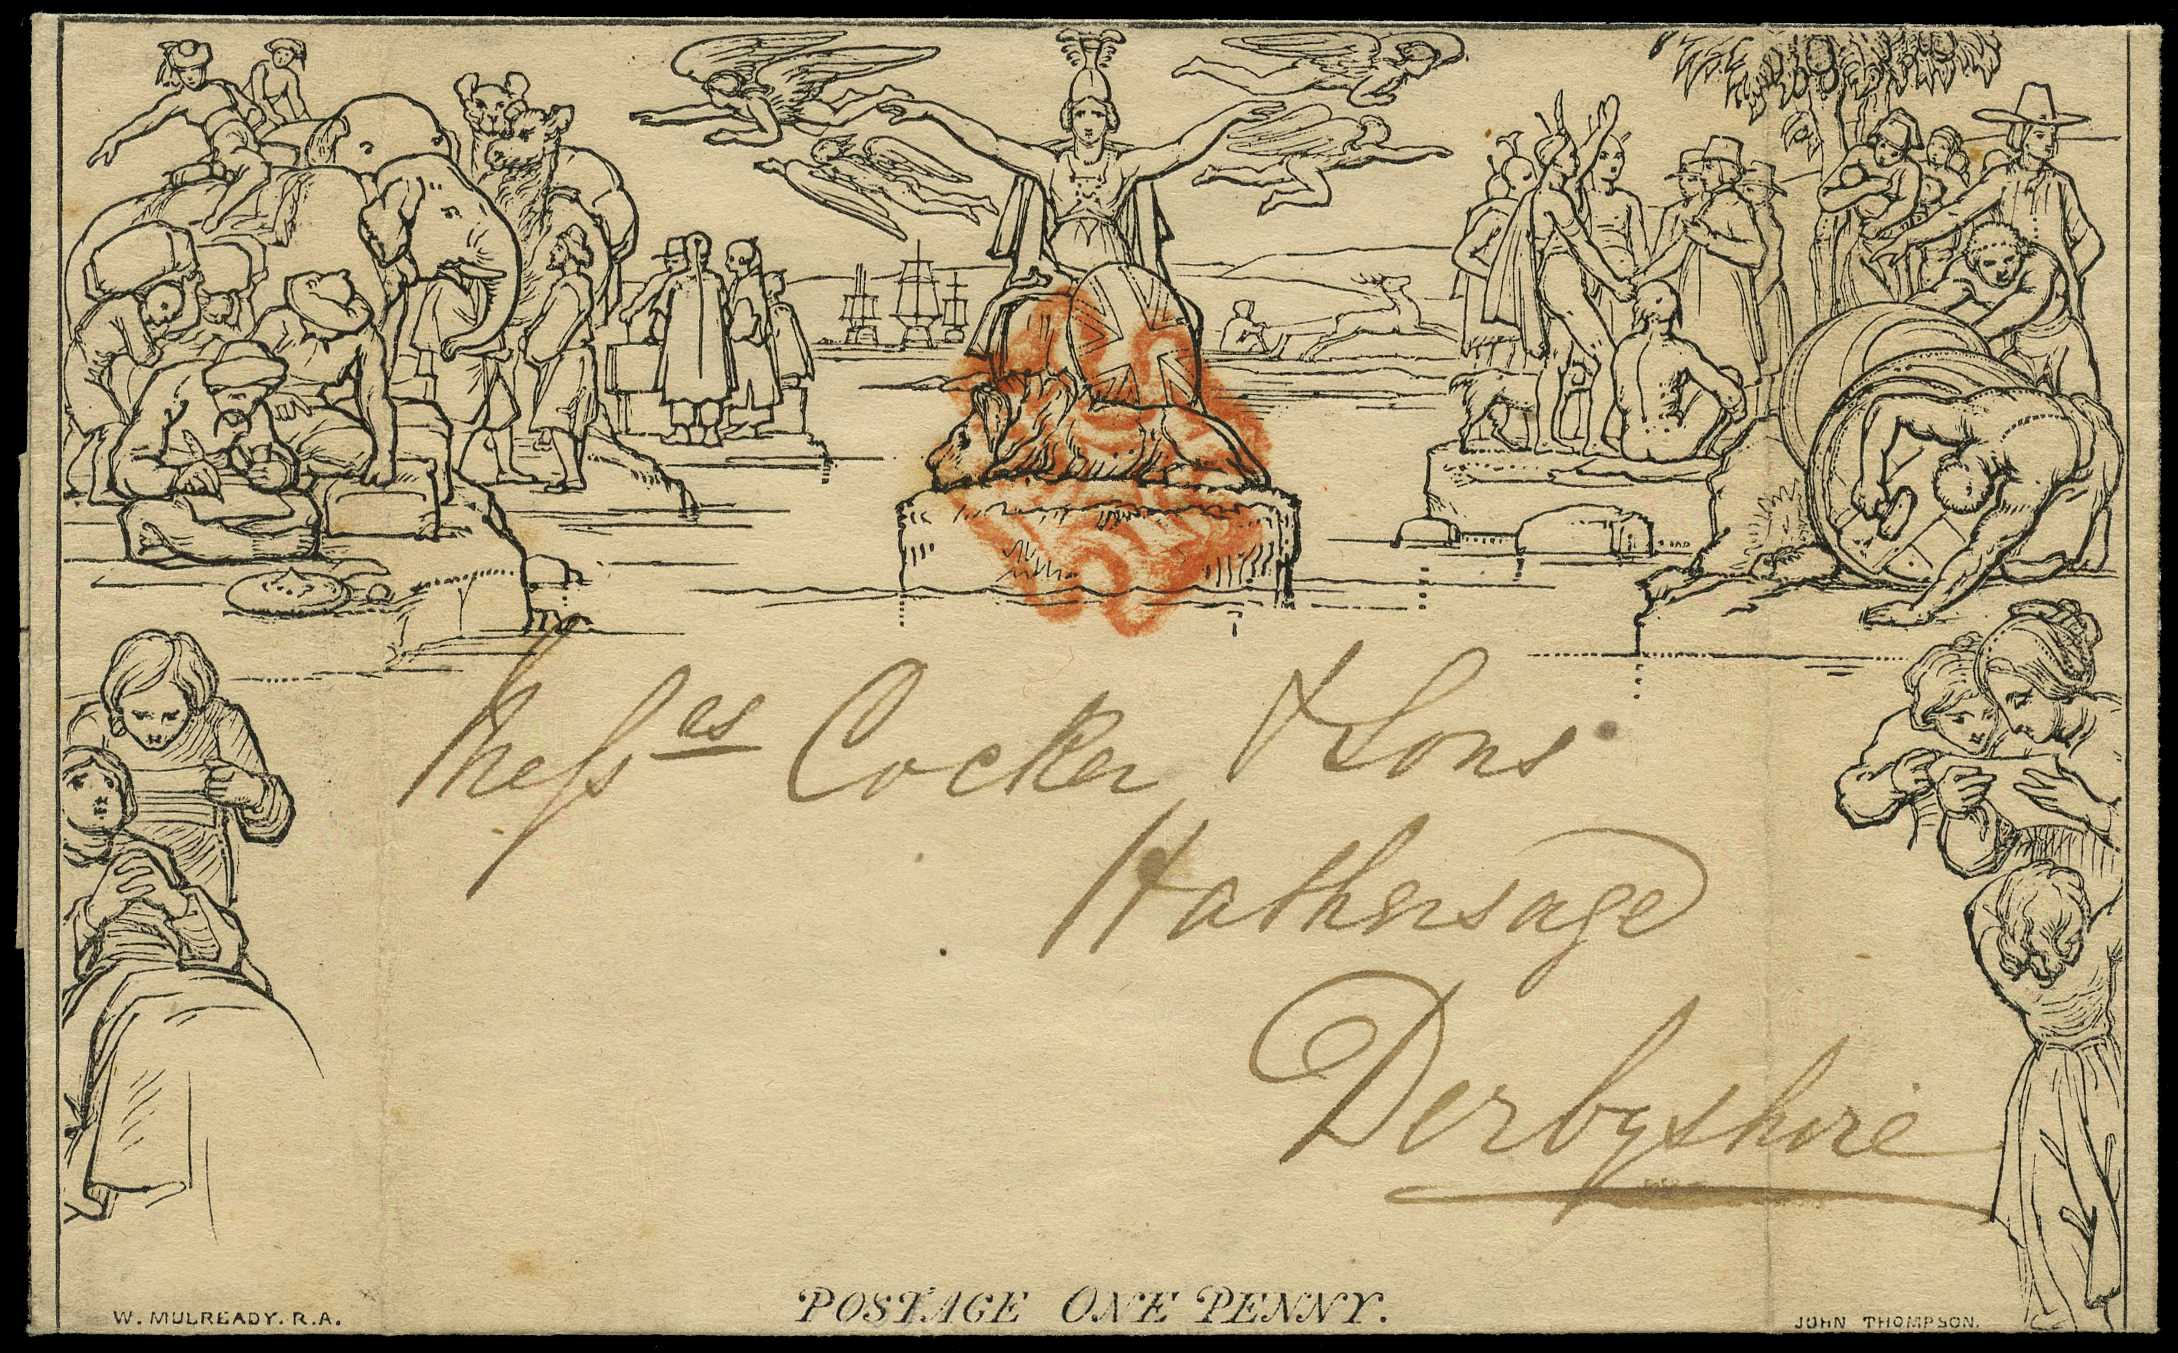 Messrs Cocker & Sons
Hathersage
Derbyshire
POSTAGE ONE PENNY.
W. MULREADY. R.A.
JOHN THOMPSON.